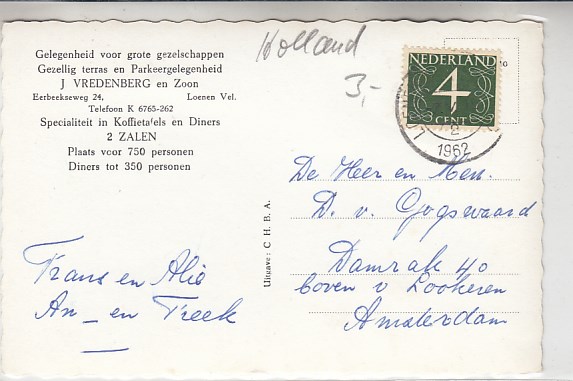 Gelegenheid voor grote gezelschappen
Gezellig terras en Parkeergelegenheid
J VREDENBERG en Zoon
Eerbeekseweg 24, Loenen Vel.
Telefoon K 6765-262
Specialiteit in Koffietafels en Diners
2 ZALEN
Plaats voor 750 personen
Diners tot 350 personen
Holland
3,-
NEDERLAND
4
CENT
2
1962
Uitgave: C H. B. A.
De Heer en Mev.
D. v. Gogswaard
Damrak 40
boven v Lookeren
Amsterdam
Frans en Alie
An _ en Freek